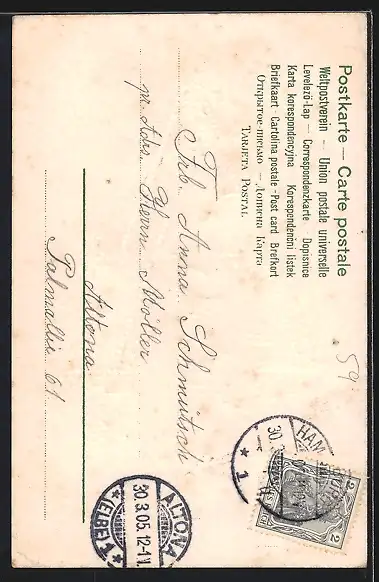 Postkarte — Carte postale
Weltpostverein — Union postale universelle
Levelezö-Lap — Correspondenzkarte Dopisnice
Karta korespondencyjna Korespondenční listek
Briefkaart Cartolina postale - Post card Brefkort
Открытое письмо — Дописна Карта
TARJETA POSTAL
59
Frl. Anna Schmütsch
pr. Adr. Herrn Möller
Altona
Palmaille 61
HAMBURG
30.
* 1
2 2
ALTONA
30.3.05.12-1V.
* 1 (ELBE) *